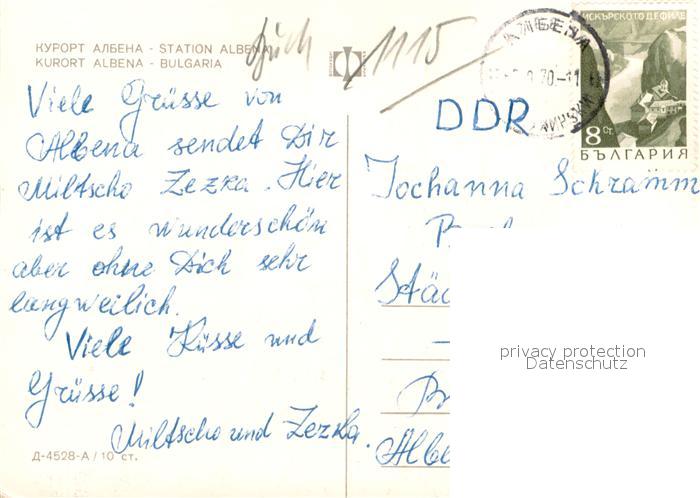 КУРОРТ АЛБЕНА - STATION ALBENA
KURORT ALBENA - BULGARIA
1115
АЛБЕНА
ИСКЪРСКОТО ДЕФИЛЕ
8 СТ.
БЪЛГАРИЯ
Viele Grüsse von
Albena sendet Dir
Miltscho Zezka. Hier
ist es wunderschön
aber ohne Dich sehr
langweilich.
Viele Küsse und
Grüsse!
Miltscho und Zezka.
DDR
Jochanna Schramm
privacy protection
Datenschutz
Д-4528-А / 10 ст.